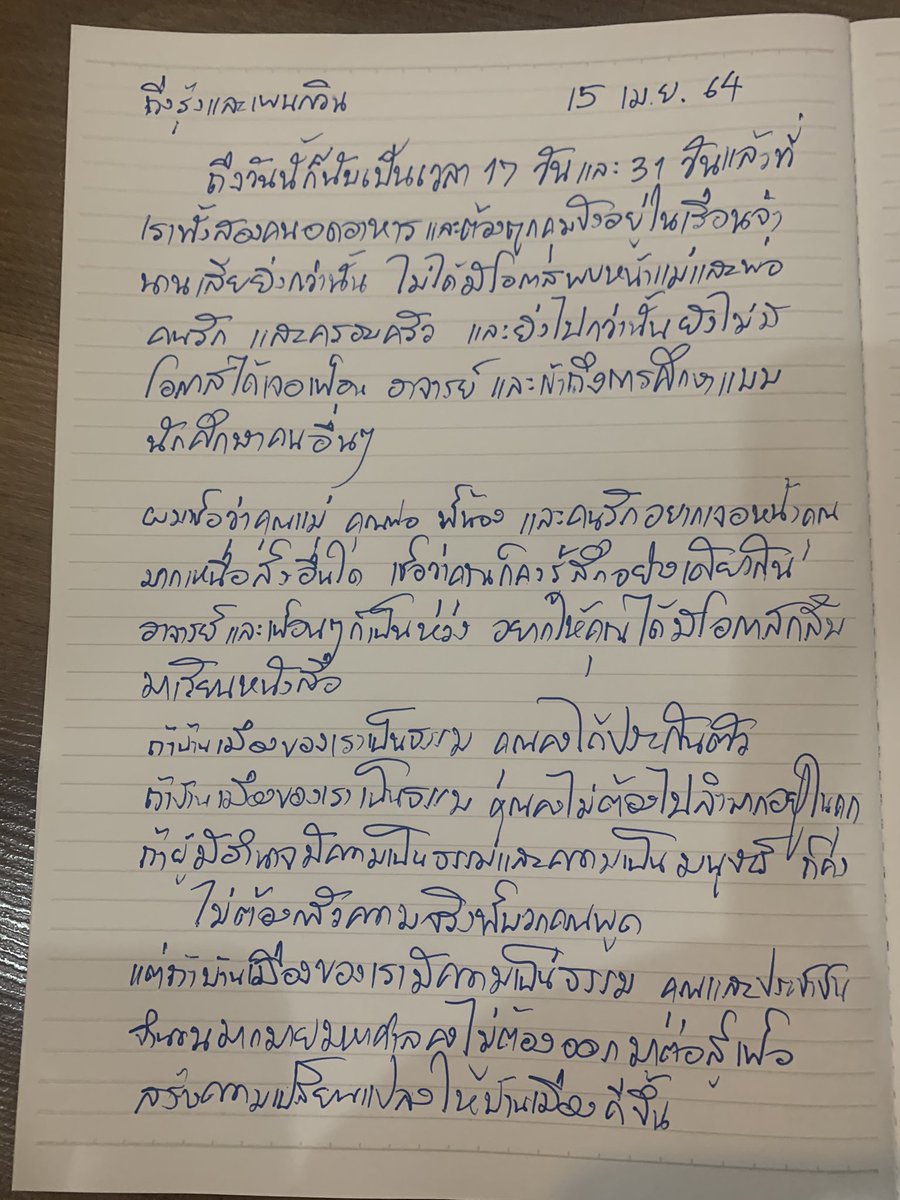 ถึงรุ้งและเพนกวิน 15 เม.ย. 64
ถึงวันนี้ก็นับเป็นเวลา 17 วัน และ 31 วันแล้วที่
เราทั้งสองคนอดอาหาร และต้องถูกคุมขังอยู่ในเรือนจำ
นานเสียยิ่งกว่านั้น ไม่ได้มีโอกาสพบหน้าแม่และพ่อ
คนรัก และครอบครัว และยิ่งไปกว่านั้นยังไม่มี
โอกาสได้เจอเพื่อน อาจารย์ และเข้าถึงการศึกษาแบบ
นักศึกษาคนอื่นๆ
ผมเชื่อว่าคุณแม่ คุณพ่อ พี่น้อง และคนรักอยากเจอหน้าคุณ
มากเหนือสิ่งอื่นใด เชื่อว่าคุณก็คงรู้สึกอย่างเดียวกัน
อาจารย์และเพื่อนๆก็เป็นห่วง อยากให้คุณได้มีโอกาสกลับ
มาเรียนหนังสือ
ถ้าบ้านเมืองของเราเป็นธรรม คุณคงได้ประกันตัว
ถ้าบ้านเมืองของเราเป็นธรรม คุณคงไม่ต้องไปลำบากอยู่ในคุก
ถ้าผู้มีอำนาจมีความเป็นธรรมและความเป็นมนุษย์ ก็คง
ไม่ต้องกลัวความจริงที่พวกคุณพูด
แต่ถ้าบ้านเมืองของเรามีความเป็นธรรม คุณและประชาชน
จำนวนมากมายมหาศาลคงไม่ต้องออกมาต่อสู้เพื่อ
สร้างความเปลี่ยนแปลงให้บ้านเมืองดีขึ้น